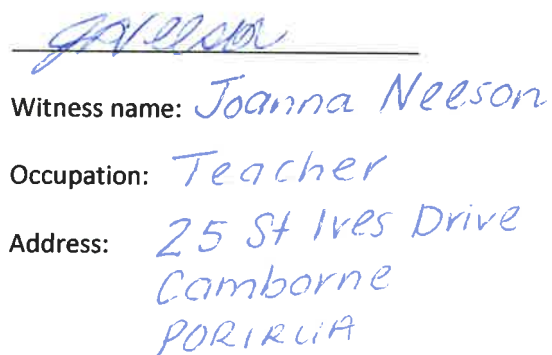 Witness name: Joanna Neeson
Occupation: Teacher
Address: 25 St Ives Drive
Camborne
PORIRUA